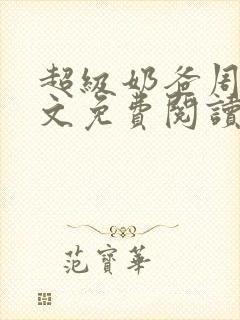 超级奶爸周
文免費閱讀
范寶華